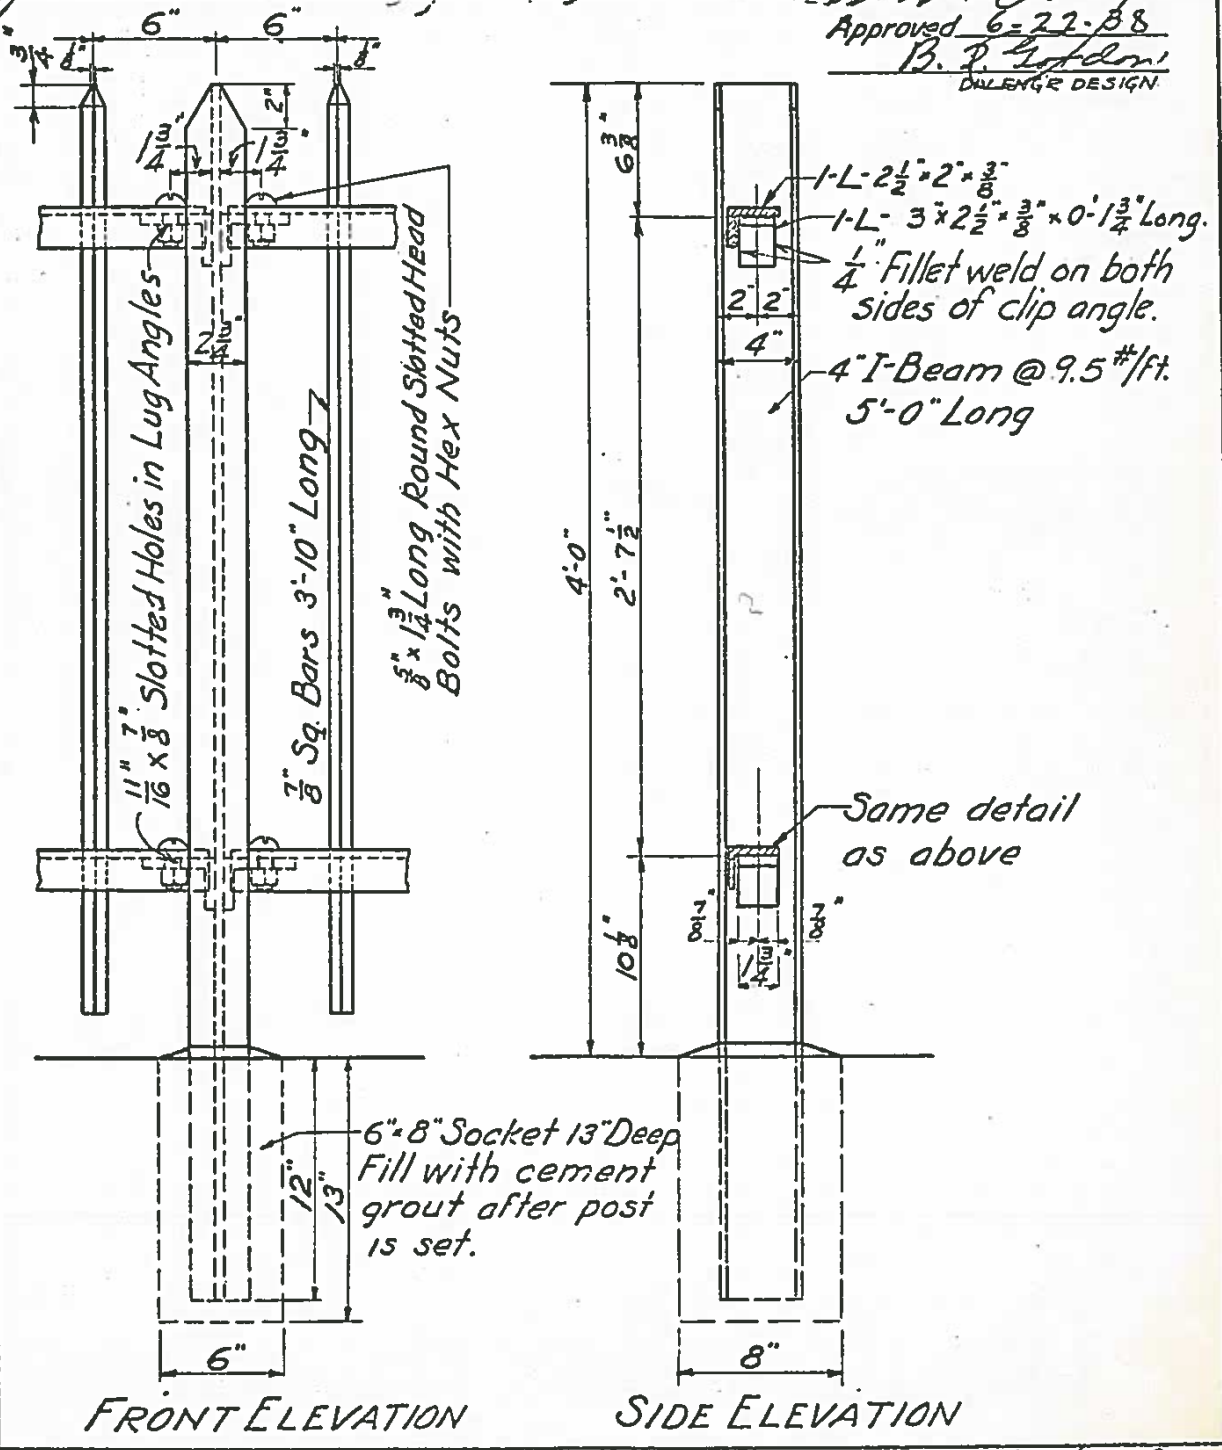 Approved 6-22-38
DESIGN
6" 6"
3/4"
1/8" 1/8"
2"
1 3/4" 1 3/4"
2 3/4"
11/16" x 7/8" Slotted Holes in Lug Angles
7/8" Sq. Bars 3'-10" Long
5/8" x 1 3/4" Long Round Slotted Head
Bolts with Hex Nuts
12"
13"
6"
6"x8" Socket 13" Deep
Fill with cement
grout after post
is set.
FRONT ELEVATION
6 3/8"
1-L-2 1/2"x2"x3/8"
1-L- 3"x2 1/2"x3/8"x0'-1 3/4" Long.
1/4" Fillet weld on both
sides of clip angle.
2" 2"
4"
4" I-Beam @ 9.5#/ft.
5'-0" Long
4'-0"
2'-7 1/2"
Same detail
as above
7/8" 7/8"
1 3/4"
10 1/8"
8"
SIDE ELEVATION